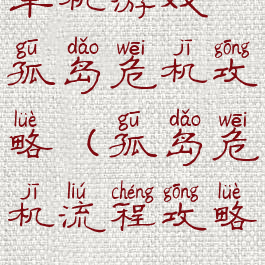 单机游戏
gū dǎo wēi jī gōng
孤岛危机攻
lüè gū dǎo wēi
略（孤岛危
jī liú chéng gōng lüè
机流程攻略